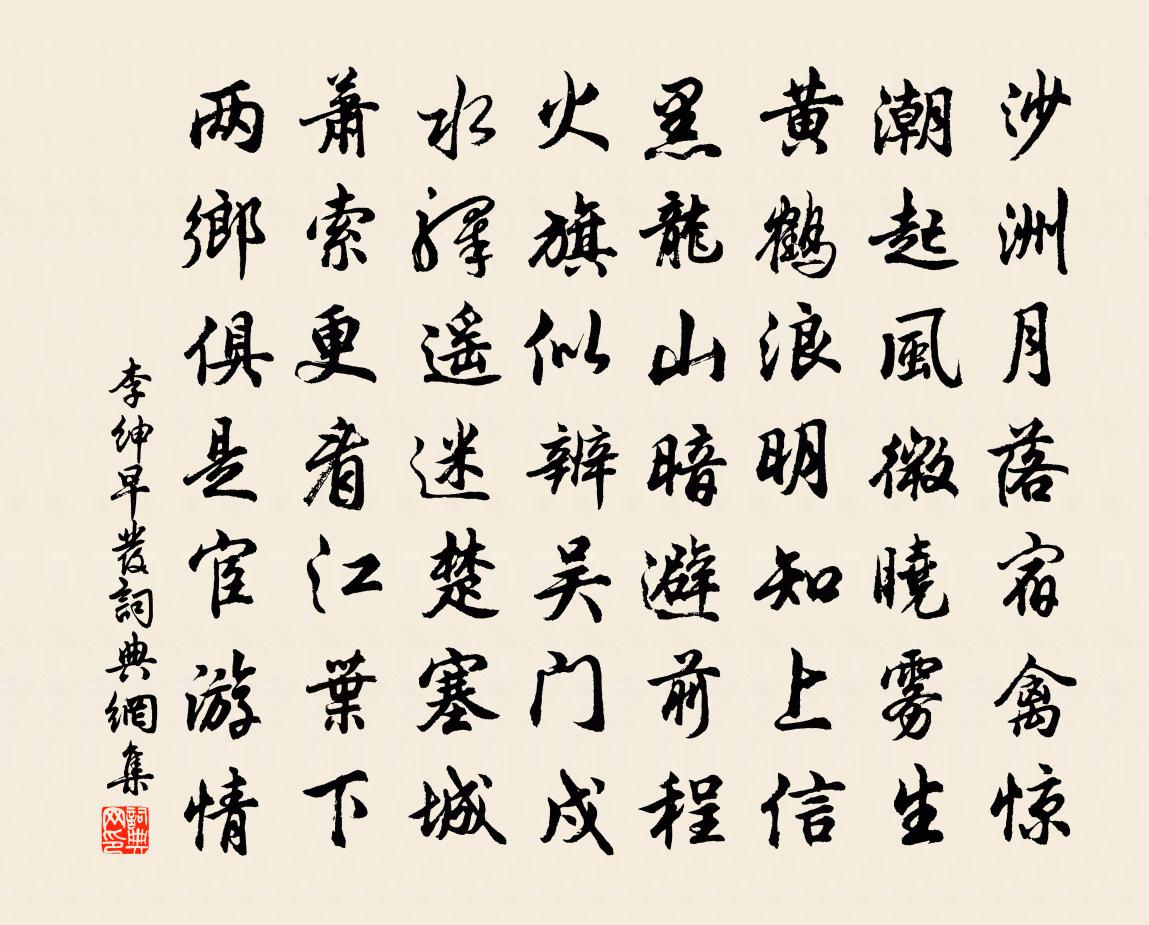 沙洲月落宿禽惊
潮起風微曉雾生
黄鹤浪明知上信
黑龍山暗避前程
火旗似辨吴门戍
水驛遥迷楚塞城
萧索更看江葉下
两鄉俱是宦游情
李紳早發詞典網集
詞典网印